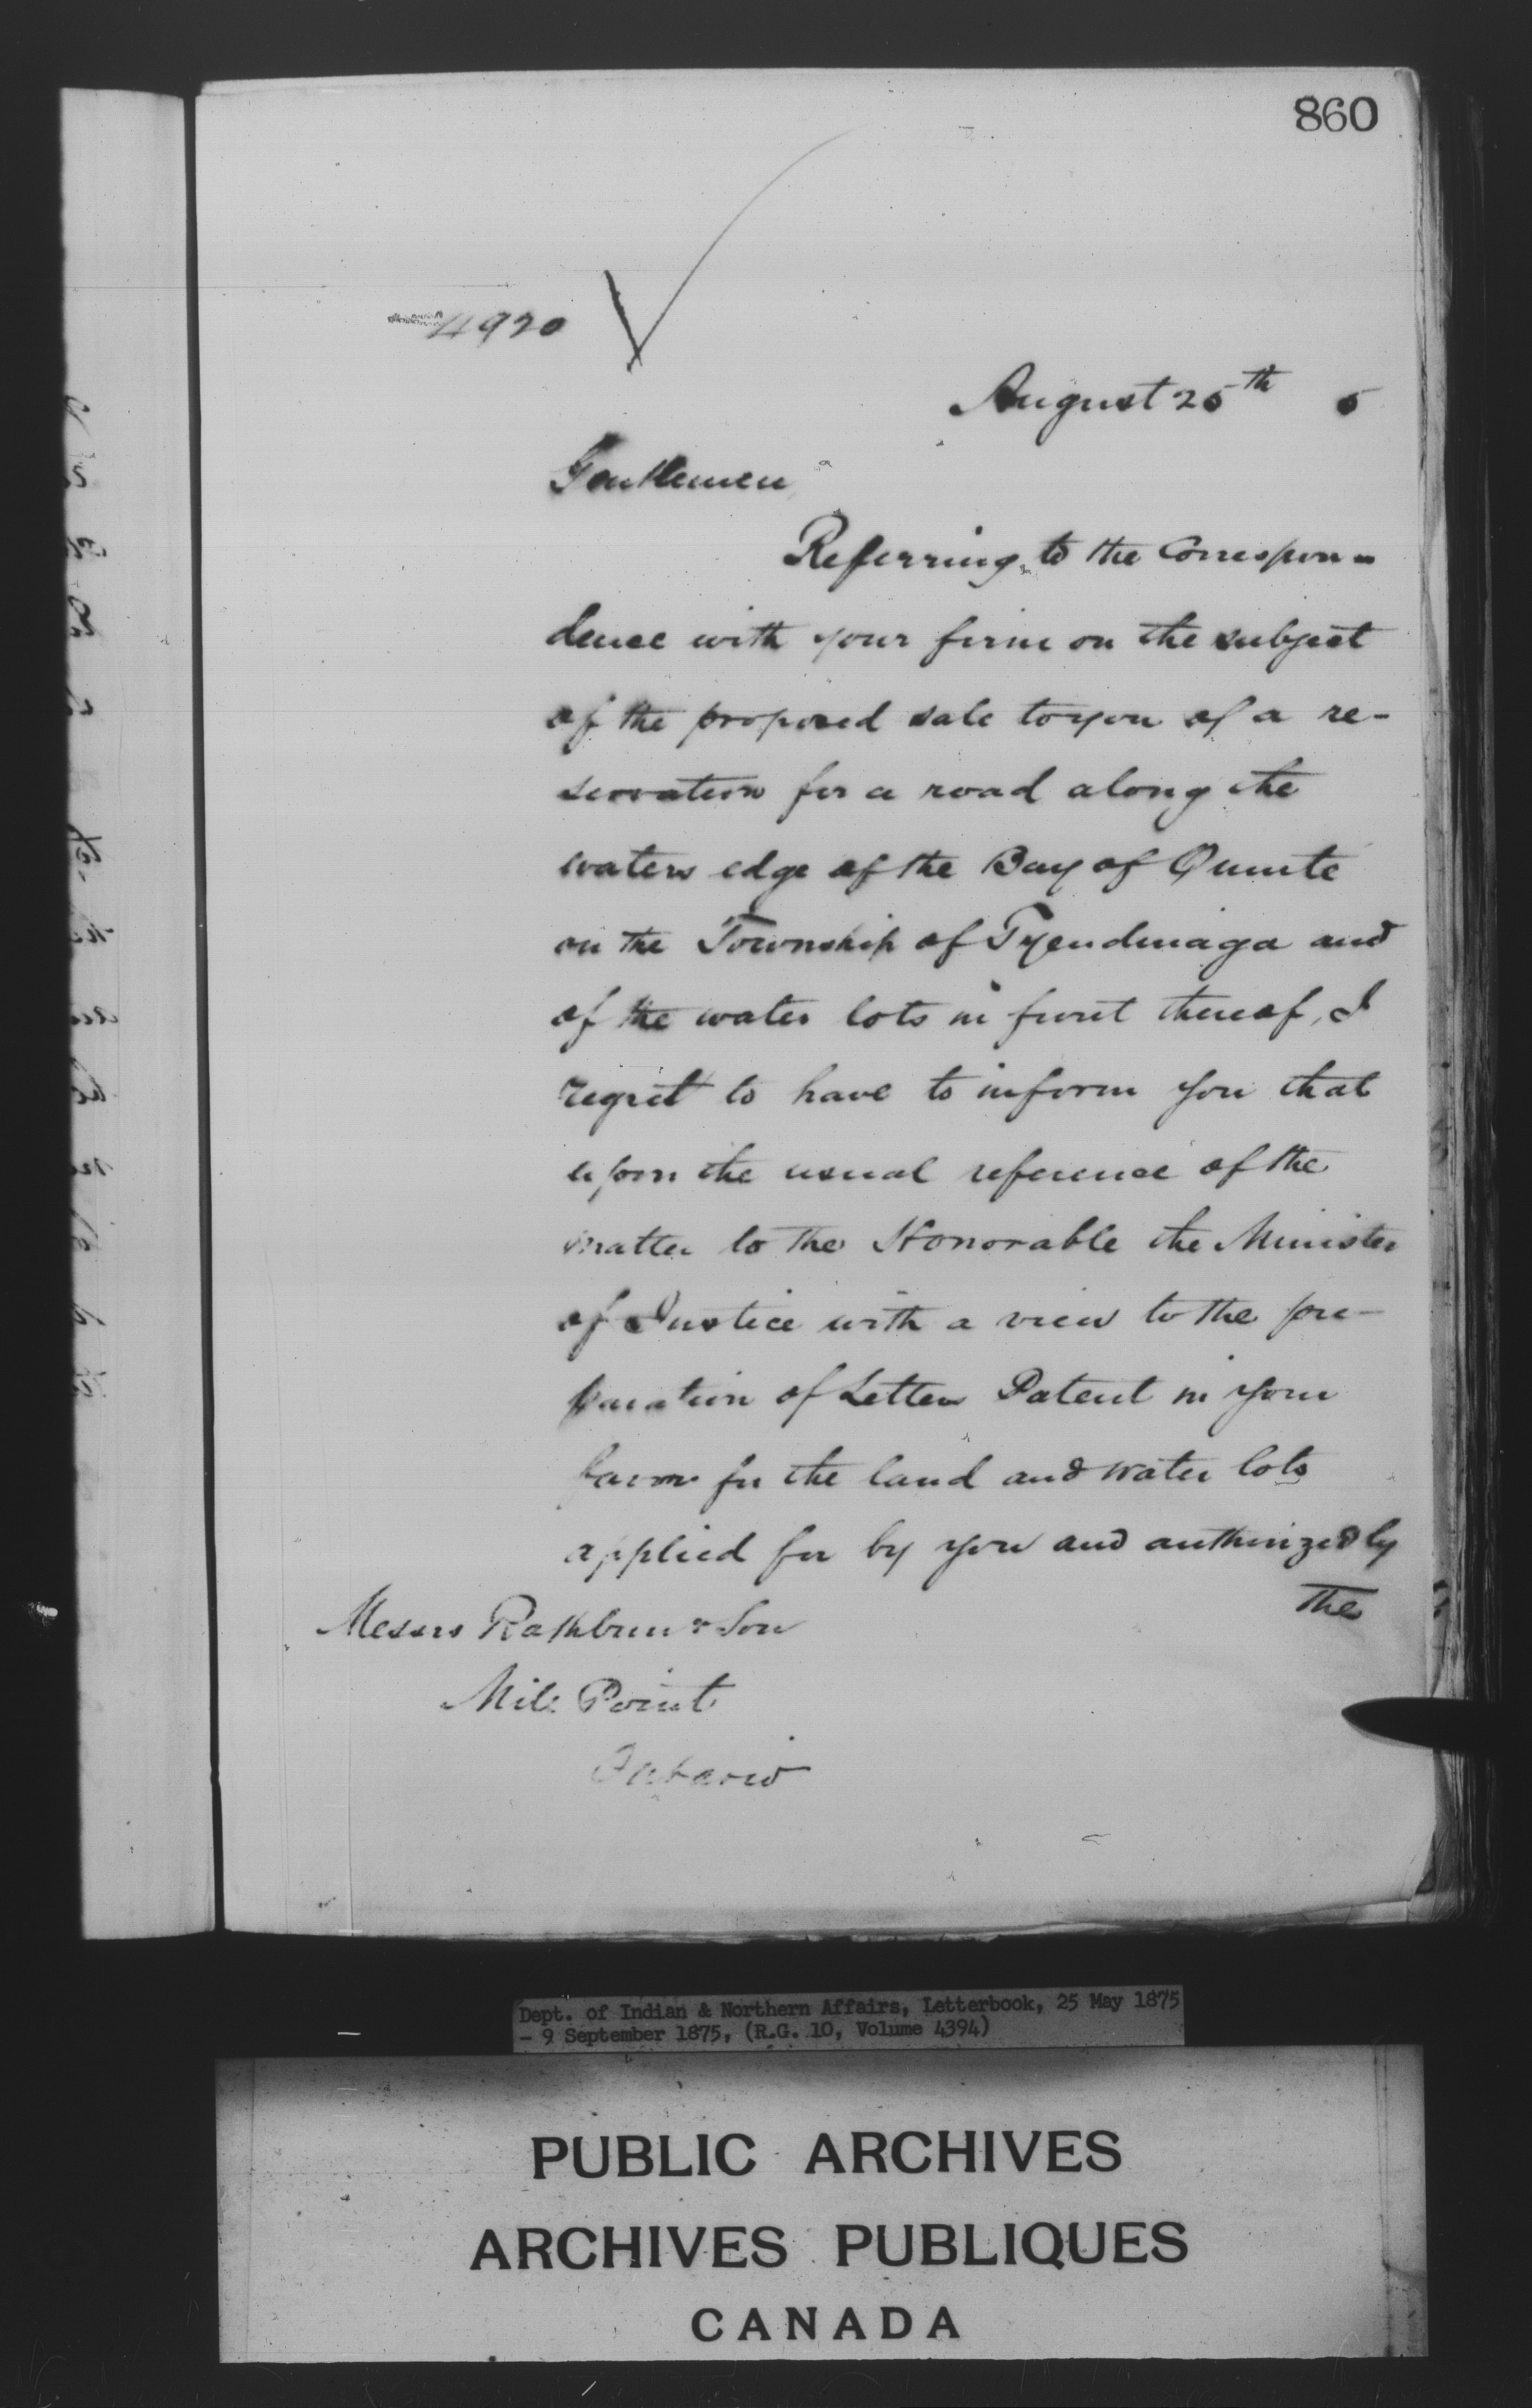 860
4920
August 25th 5
Gentlemen
Referring to the Correspon-
dence with your firm on the subject
of the proposed sale to you of a re-
servation for a road along the
waters edge of the Bay of Quinte
on the Township of Tyendinaga and
of the water lots in front thereof, I
regret to have to inform you that
upon the usual reference of the
matter to the Honorable the Minister
of Justice with a view to the pre-
paration of Letters Patent in your
favor for the land and water lots
applied for by you and authorized by
the
Messrs Rathbun & Son
Mill Point
Ontario
Dept. of Indian & Northern Affairs, Letterbook, 25 May 1875
- 9 September 1875, (R.G. 10, Volume 4394)
PUBLIC ARCHIVES
ARCHIVES PUBLIQUES
CANADA